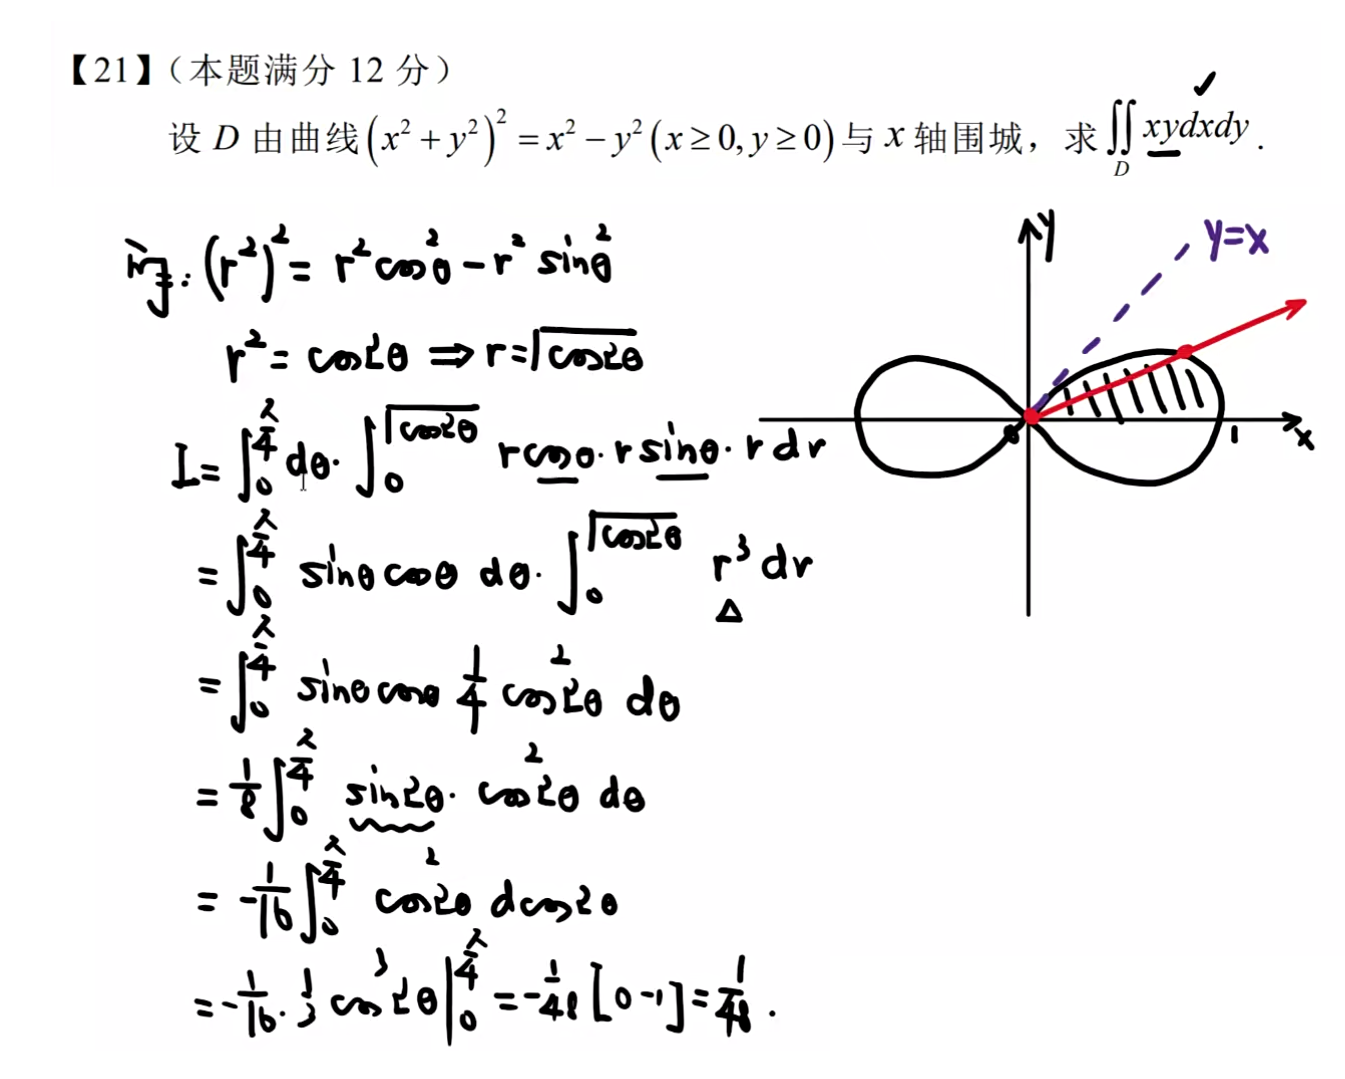 【21】（本题满分 12 分）
设 D 由曲线 (x² + y²)² = x² − y² (x ≥ 0, y ≥ 0) 与 x 轴围城，求 ∬_D xydxdy .
y
y=x
0
1
x
(r²)² = r²cos²θ − r² sin²θ
r² = cos2θ ⇒ r = √cos2θ
I = ∫₀^(π/4) dθ · ∫₀^(√cos2θ) r cosθ · r sinθ · r dr
= ∫₀^(π/4) sinθ cosθ dθ · ∫₀^(√cos2θ) r³ dr
= ∫₀^(π/4) sinθ cosθ 1/4 cos²2θ dθ
= 1/8 ∫₀^(π/4) sin2θ · cos²2θ dθ
= −1/16 ∫₀^(π/4) cos²2θ dcos2θ
= −1/16 · 1/3 cos³2θ |₀^(π/4) = −1/48 [0 − 1] = 1/48 .